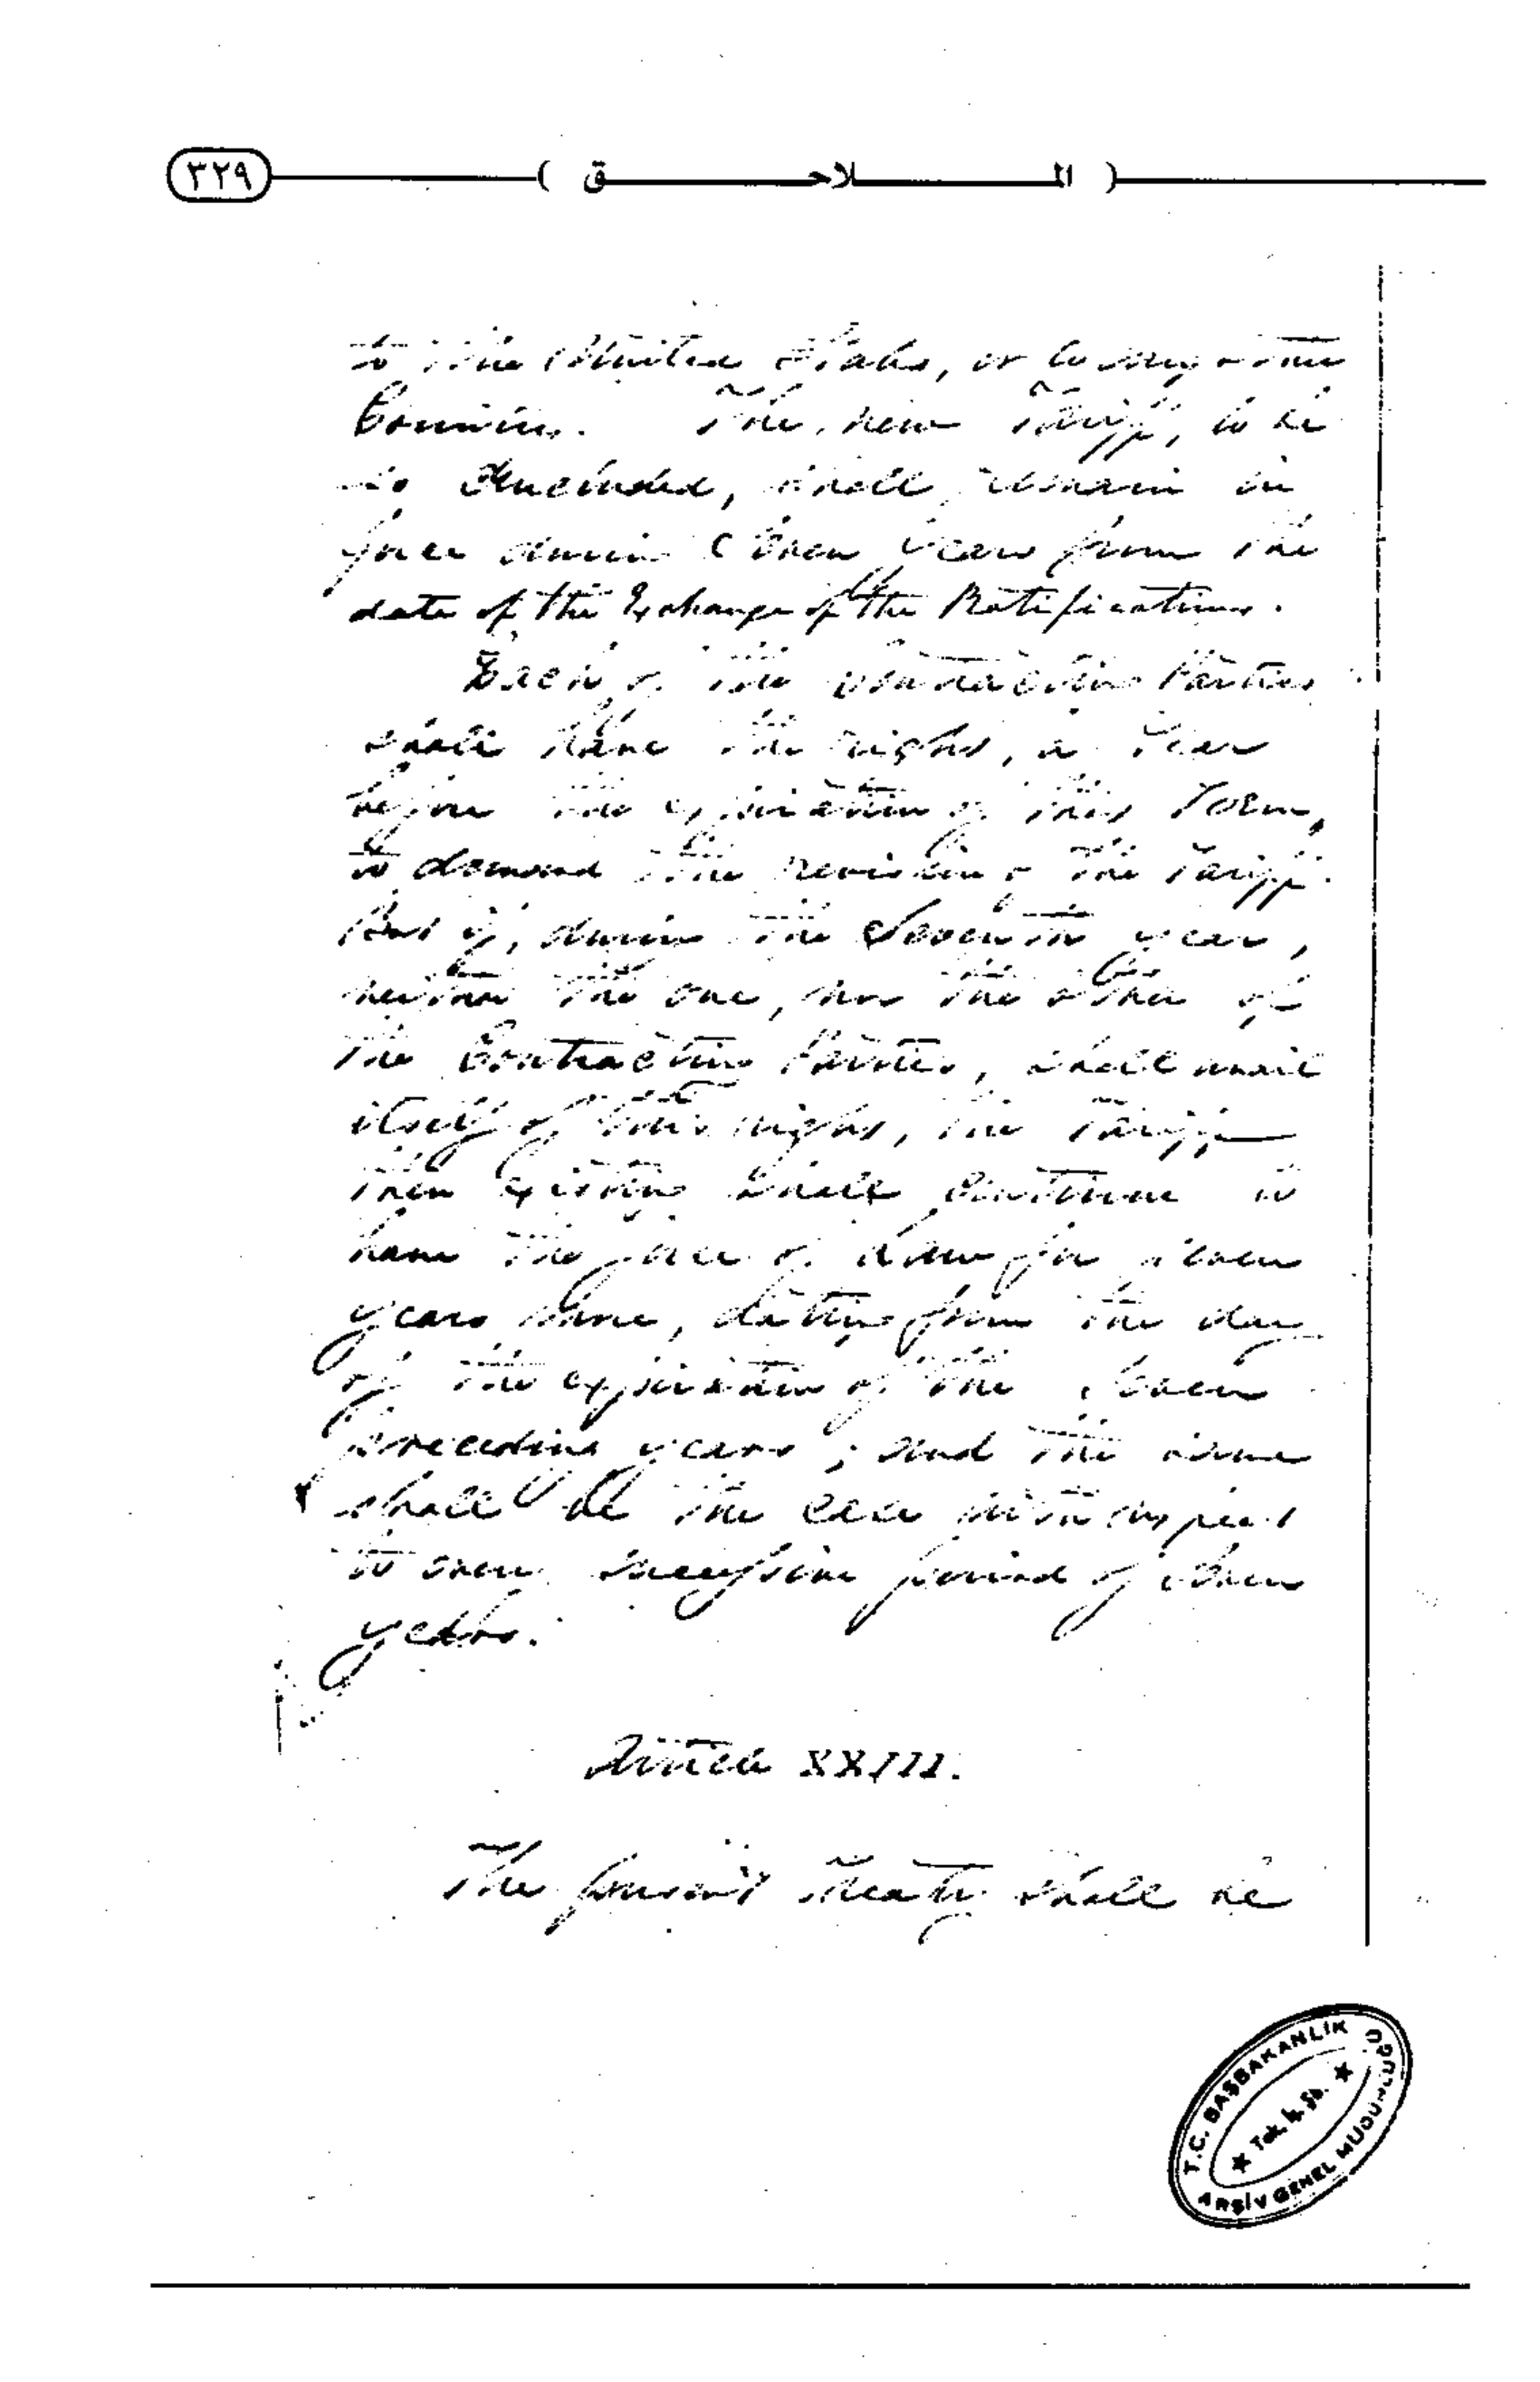 ( الملاحق ) ٣٢٩
to the United States, or to any other
Countries. The new Tariff, to be
so concluded, shall remain in
force during seven years from the
date of the Exchange of the Ratifications.
Each of the Contracting Parties
shall have the right, a Year
before the expiration of this Term,
to demand the revision of the Tariff.
But if, during the Seventh year,
neither the one, nor the other of
the Contracting Parties, shall avail
itself of this right, the Tariff
then existing shall continue to
have the force of law for seven
years more, dating from the day
of the expiration of the seven
preceding years; and the same
shall be the case with respect
to every successive period of seven
years.
Article XXIII.
The present treaty shall be
T.C. BAŞBAKANLIK
★ Tek. ★
ARŞİV GENEL MÜDÜRLÜĞÜ